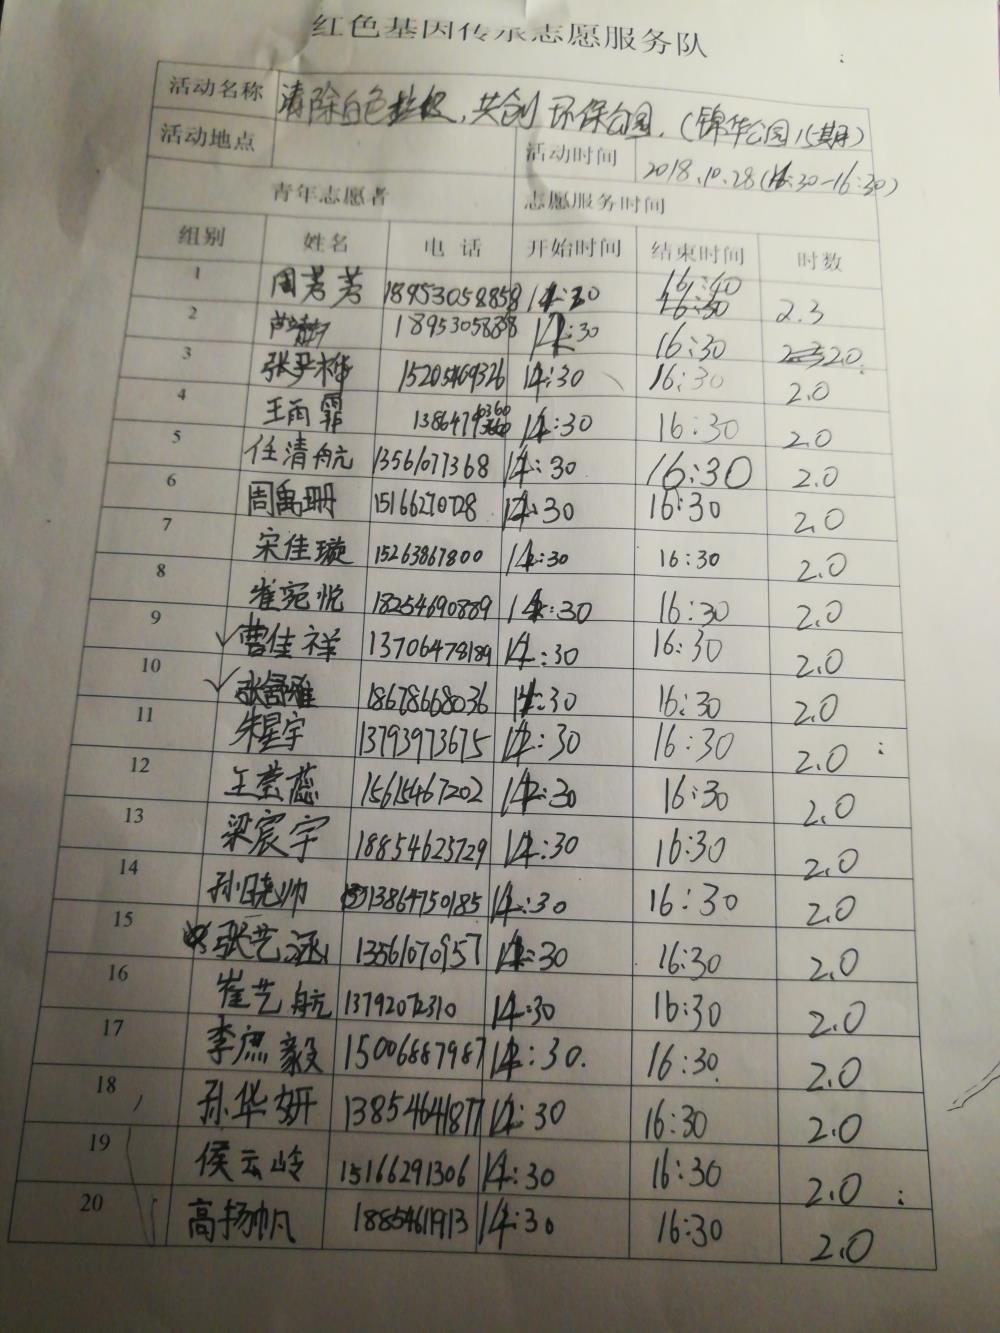 红色基因传承志愿服务队
活动名称 清除白色垃圾,共创环保公园.(锦华公园八期)
活动地点 活动时间 2018.10.28(14:30-16:30)
青年志愿者 志愿服务时间
组别 姓名 电话 开始时间 结束时间 时数
1 周芳芳 18953058858 14:30 16:40 2.3
2 18953058858 14:30 16:30 2.0
3 张尹桦 15205469326 14:30 16:30 2.0
4 王雨霏 1386479 14:30 16:30 2.0
5 任清航 13561077368 14:30 16:30 2.0
6 周禹珊 15166270728 14:30 16:30 2.0
7 宋佳璇 15263867800 14:30 16:30 2.0
8 崔宛悦 18254690889 14:30 16:30 2.0
9 曹佳祥 13706478189 14:30 16:30 2.0
10 张舒雅 18678668036 14:30 16:30 2.0
11 朱星宇 13793973675 14:30 16:30 2.0
12 王莹蕊 15615467202 14:30 16:30 2.0
13 梁宸宇 18854625729 14:30 16:30 2.0
14 孙晓帅 13864750185 14:30 16:30 2.0
15 张艺涵 13561070957 14:30 16:30 2.0
16 崔艺航 13792072310 14:30 16:30 2.0
17 李庶毅 15006887987 14:30 16:30 2.0
18 孙华妍 13854641877 14:30 16:30 2.0
19 侯云岭 15166291306 14:30 16:30 2.0
20 高扬帆 1885461913 14:30 16:30 2.0